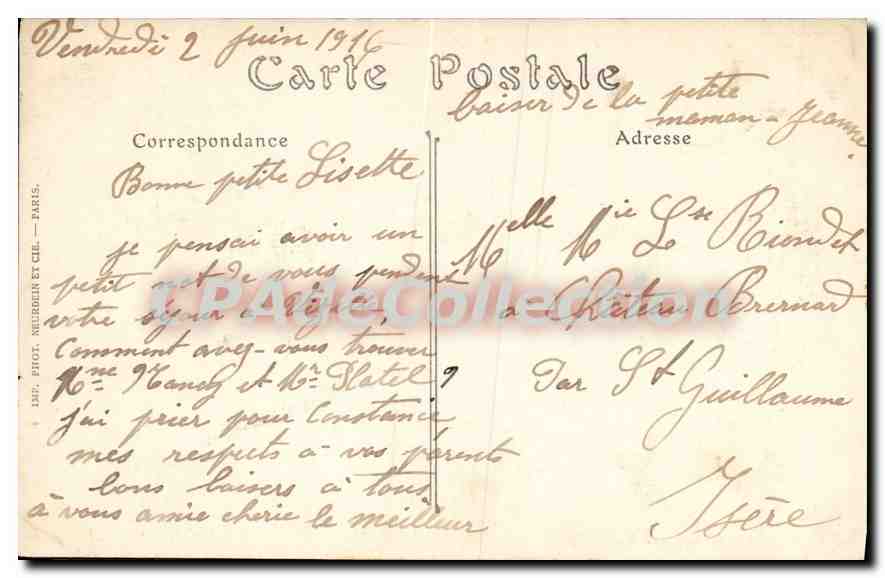 Vendredi 2 Juin 1916
Carte Postale
baiser de la petite
maman - Jeanne.
Correspondance
Adresse
Bonne petite Lisette
je pensai avoir un
petit mot de vous pendent
votre séjour a
Comment avez-vous trouver
Mme et Mr Platel ?
j'ai prier pour Constance
mes respects a vos parents
bons baisers a tous
à vous amie cherie le meilleur
Melle Mie Lse Riondet
a Château Brernard
Par St
Guillaume
Isère
IMP. PHOT. NEURDEIN ET CIE. — PARIS.
CPAdeCollection